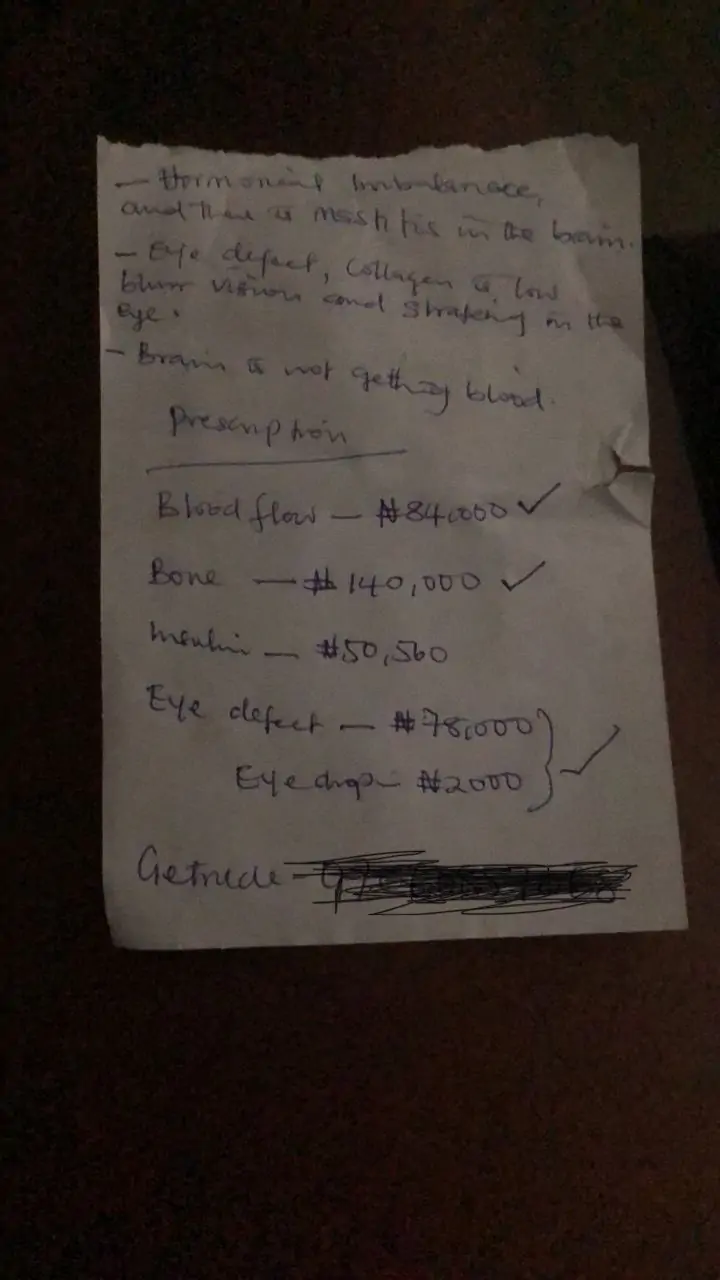 - Hormonal Imbalance,
and there is Mastitis in the brain.
- Eye defect, Collagen is low
blur vision and in the
eye.
- Brain is not getting blood.
Prescription
Blood flow - ₦84,000 ✓
Bone - ₦140,000 ✓
Insulin - ₦50,560
Eye defect - ₦78,000 } ✓
Eye drop - ₦2000
Getrude -